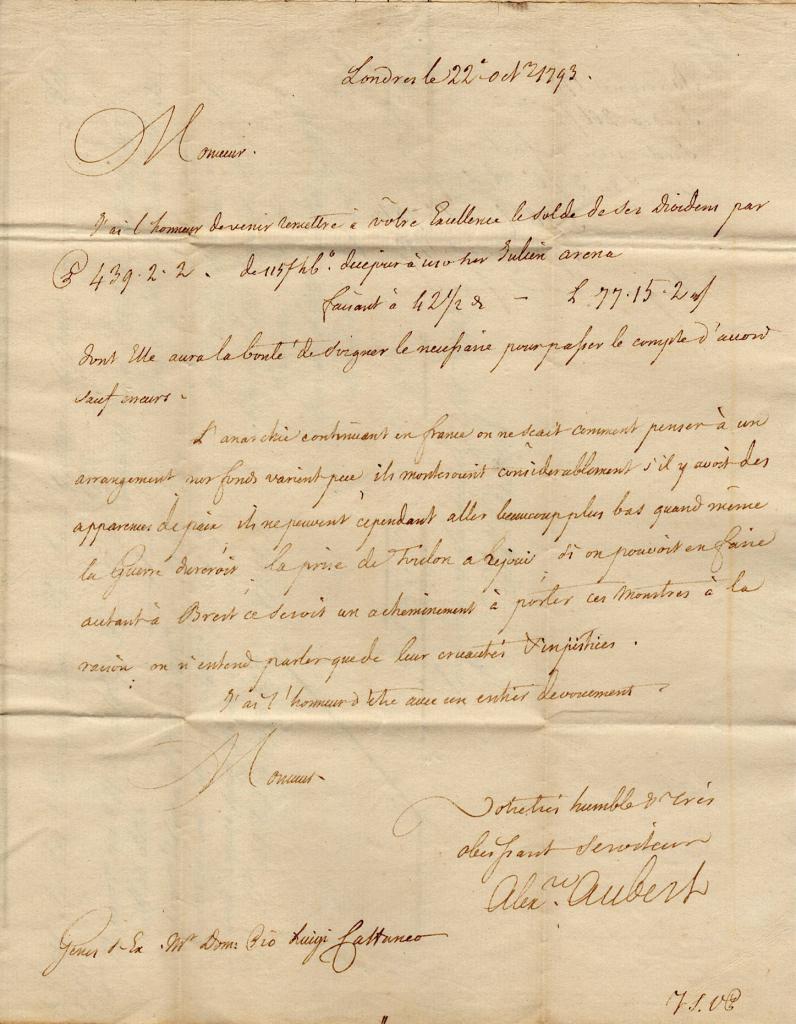 Londres le 22e. Octre. 1793.
Monsieur.
J'ai l'honneur de venir remettre à vôtre Excellence le solde de ses Dividens par
439.2.2. de 115 dito à uso sur Julien arena
faisant à 42 1/2 d — £ 77.15.2
dont Elle aura la bonté de soigner le necessaire pour passer le compte d'accord
sauf erreurs.
L'anarchie continuant en france on ne scait comment penser à un
arrangement nos fonds varient peu ils monteroient considerablement s'il y avoit des
apparences de paix ils ne peuvent cependant aller beaucoup plus bas quand même
la Guerre dureroit, la prise de Toulon a rejoui si on pouvoit en faire
autant à Brest ce seroit un acheminement à porter ces Monstres à la
raison on n'entend parler que de leur cruautés & injustices.
J'ai l'honneur d'être avec un entier devouement
Monsieur
Votre très humble & très
obeissant Serviteur
Alexre. Aubert
Genes S. Ex. Mr. Dom: Pio Luigi Cattaneo